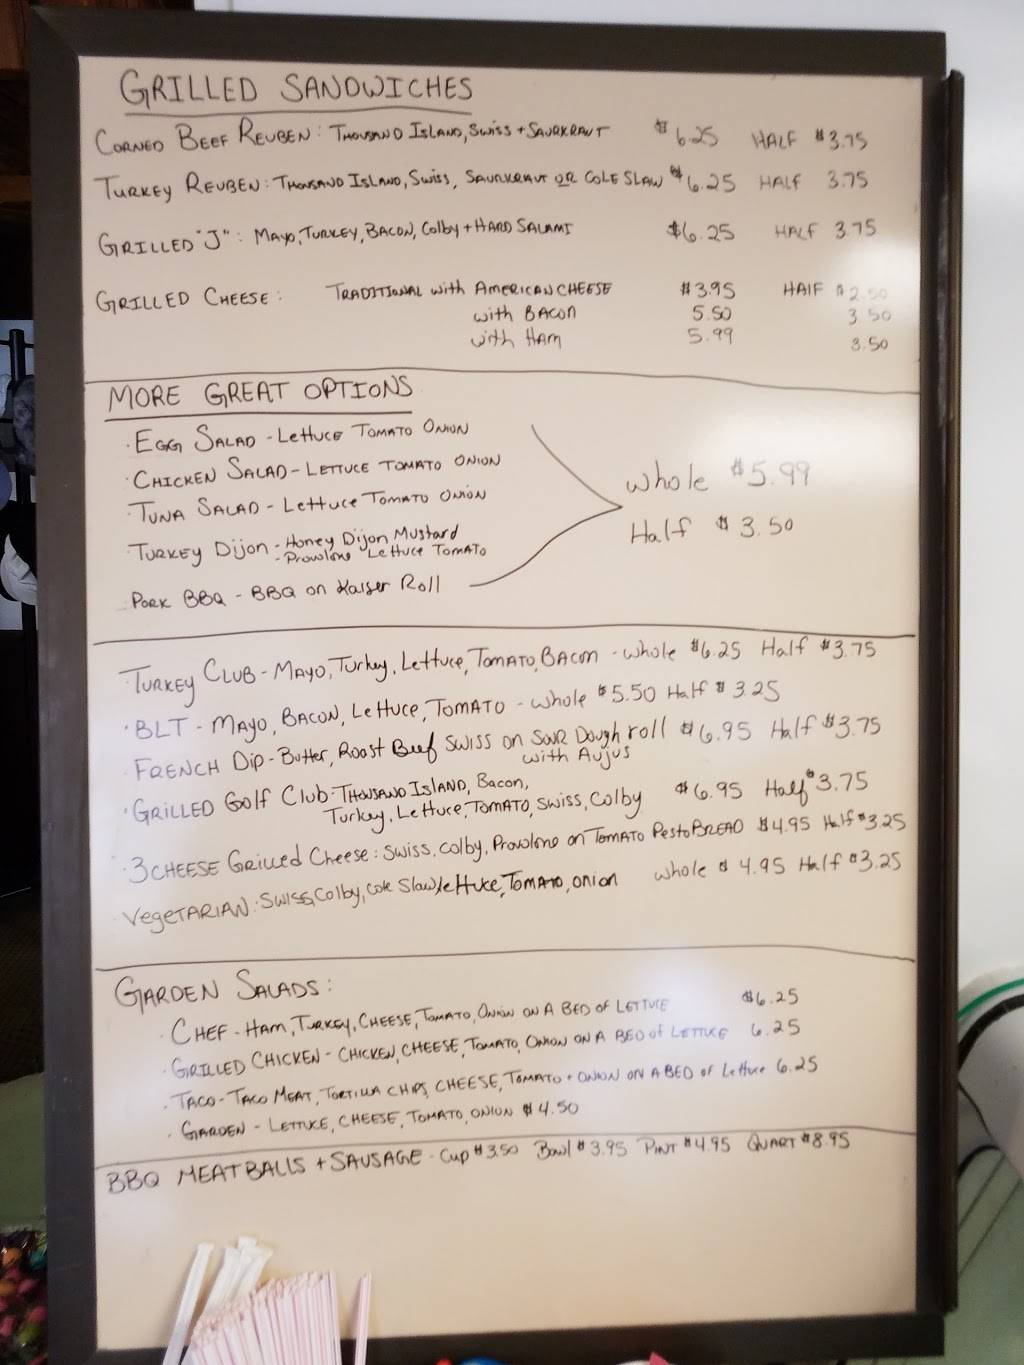 GRILLED SANDWICHES
CORNED BEEF REUBEN: THOUSAND ISLAND, SWISS + SAURKRAUT $6.25 HALF $3.75
TURKEY REUBEN: THOUSAND ISLAND, SWISS, SAURKRAUT OR COLE SLAW $6.25 HALF 3.75
GRILLED "J": MAYO, TURKEY, BACON, Colby + HARD SALAMI $6.25 HALF 3.75
GRILLED CHEESE: TRADITIONAL with AMERICAN CHEESE $3.95 HAlF $2.50
with BACON 5.50 3.50
with HAM 5.99 3.50
MORE GREAT OPTIONS
· EGG SALAD - LETTUCE TOMATO ONION
· CHICKEN SALAD - LETTUCE TOMATO ONION
whole $5.99
· TUNA SALAD - Lettuce TOMATO ONION
Half $3.50
· TURKEY Dijon - Honey Dijon Mustard
- Provlone Lettuce TOMATO
· PORK BBQ - BBQ on Kaiser Roll
· TURKEY CLUB - MAYO, Turkey, Lettuce, TOMATO, BACON - whole $6.25 Half $3.75
· BLT - MAYO, BACON, Lettuce, TOMATO - whole $5.50 Half $3.25
· FRENCH Dip - Butter, Roast Beef SWISS on SOUR Dough roll $6.95 Half $3.75
with Aujus
· GRILLED Golf Club: THOUSAND ISLAND, Bacon,
Turkey, Lettuce, TOMATO, Swiss, Colby $6.95 Half $3.75
· 3 CHEESE Grilled Cheese: Swiss, Colby, Provolone on TOMATO Pesto BREAD $4.95 Half $3.25
· VegeTARIAN: SWISS, Colby, Cole Slaw, lettuce, TOMATO, onion whole $4.95 Half $3.25
GARDEN SALADS:
· CHEF - HAM, TURKEY, CHEESE, TOMATO, ONION ON A BED of LETTUCE $6.25
· GRILLED CHICKEN - CHICKEN, CHEESE, TOMATO, ONION ON A BED of LETTUCE 6.25
· TACO - TACO MEAT, TORTILLA CHIPS, CHEESE, TOMATO + ONION ON A BED of Lettuce 6.25
· GARDEN - LETTUCE, CHEESE, TOMATO, ONION $4.50
BBQ MEATBALLS + SAUSAGE - Cup $3.50 Bowl $3.95 PINT $4.95 QUART $8.95